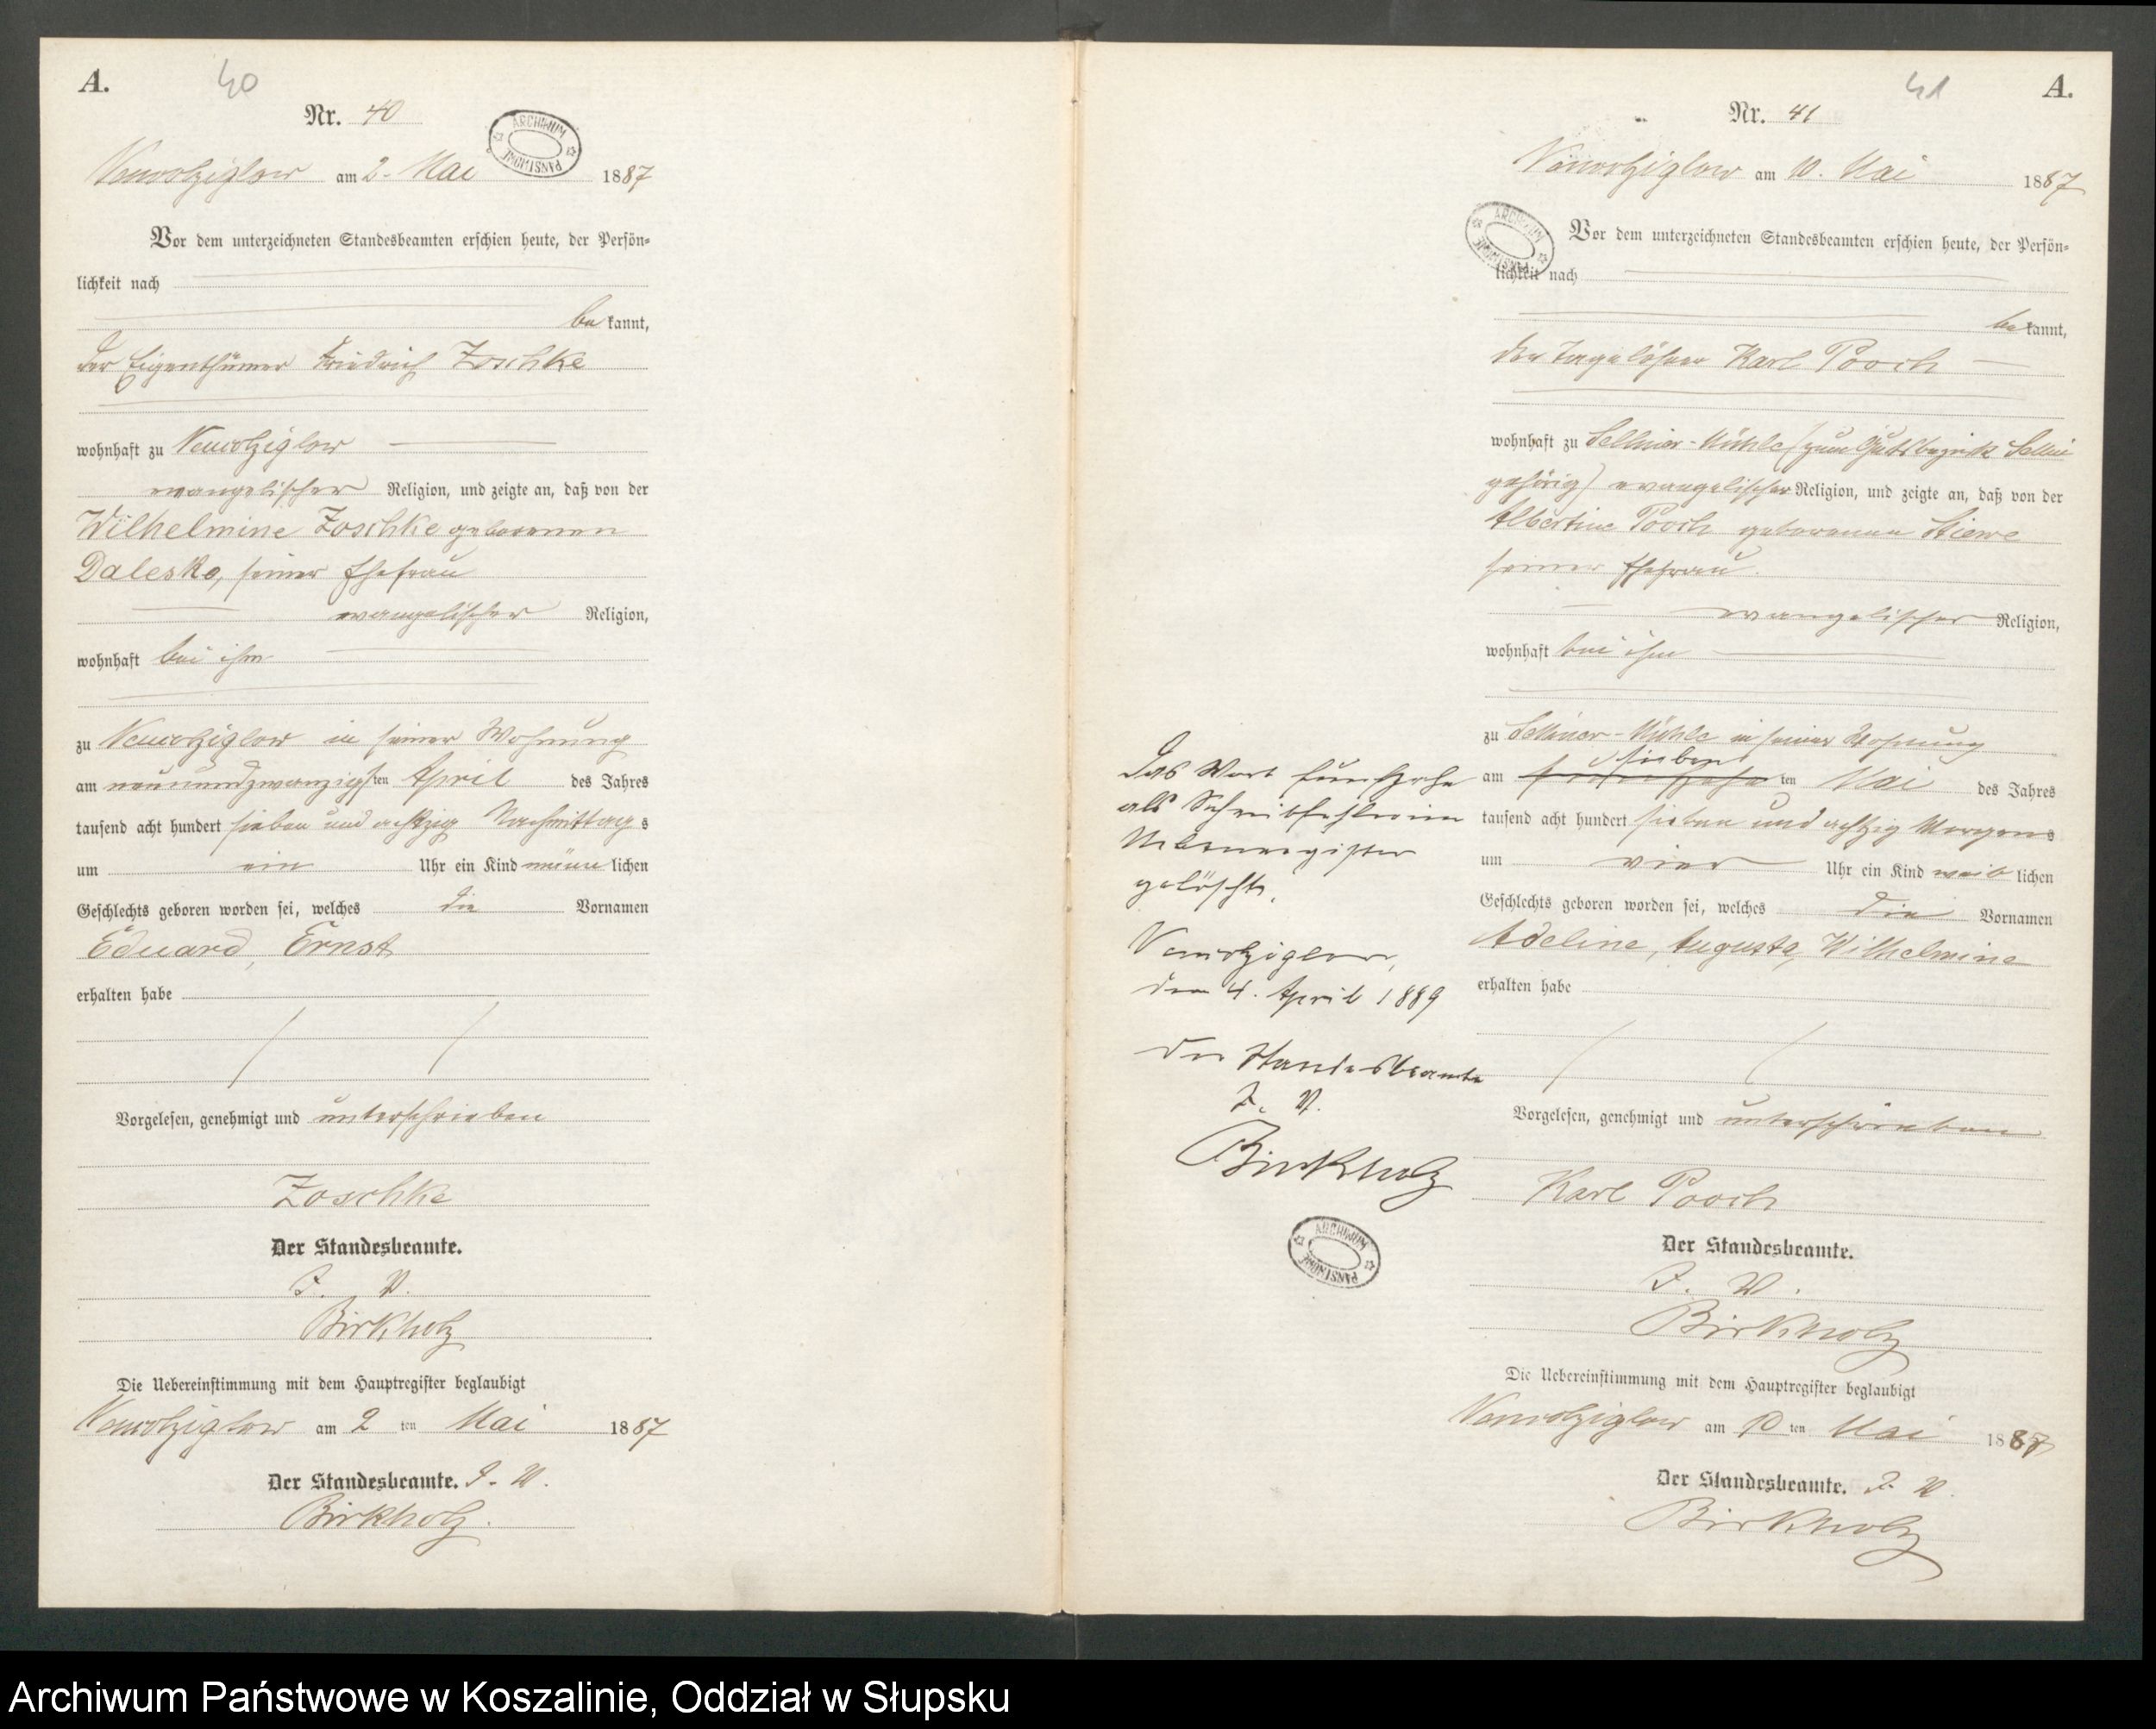 A.
40
Nr. 40
ARCHIWUM PAŃSTWOWE
Neuwolziglow am 2. Mai 1887
Vor dem unterzeichneten Standesbeamten erschien heute, der Persön-
lichkeit nach
be kannt,
der Eigenthümer Friedrich Zoschke
wohnhaft zu Neuwolziglow
evangelischer Religion, und zeigte an, daß von der
Wilhelmine Zoschke geborenen
Daleske, seiner Ehefrau
evangelischer Religion,
wohnhaft bei ihm
zu Neuwolziglow in seiner Wohnung
am neunundzwanzigsten April des Jahres
tausend acht hundert sieben und achtzig Nachmittags
um ein Uhr ein Kind männlichen
Geschlechts geboren worden sei, welches die Vornamen
Eduard, Ernst
erhalten habe
Vorgelesen, genehmigt und unterschrieben
Zoschke
Der Standesbeamte.
I. V.
Birkholz
Die Uebereinstimmung mit dem Hauptregister beglaubigt
Neuwolziglow am 2 ten Mai 1887
Der Standesbeamte. I. V.
Birkholz.
41
A.
Nr. 41
Neuwolziglow am 10. Mai 1887
ARCHIWUM PAŃSTWOWE
Vor dem unterzeichneten Standesbeamten erschien heute, der Persön-
lichkeit nach
be kannt,
der Tagelöhner Karl Pooch
wohnhaft zu Selliner-Mühle (zum Gutsbezirk Sellin
gehörig) evangelischer Religion, und zeigte an, daß von der
Albertine Pooch geborenen Stiewe
seiner Ehefrau.
evangelischer Religion,
wohnhaft bei ihm
zu Selliner-Mühle in seiner Wohnung
siebent
am fünfzehn ten Mai des Jahres
tausend acht hundert sieben und achtzig Morgens
um vier Uhr ein Kind weiblichen
Geschlechts geboren worden sei, welches die Vornamen
Adeline, Auguste, Wilhelmine
erhalten habe
Vorgelesen, genehmigt und unterschrieben
Karl Pooch
Der Standesbeamte.
I. V.
Birkholz
Die Uebereinstimmung mit dem Hauptregister beglaubigt
Neuwolziglow am 10 ten Mai 1887
Der Standesbeamte. I. V.
Birkholz
Das Wort fünfzehn
als Schreibfehler im
Nebenregister
gelöscht.
Neuwolziglow,
den 4. April 1889
Der Standesbeamte
I. V.
Birkholz
ARCHIWUM PAŃSTWOWE
Archiwum Państwowe w Koszalinie, Oddział w Słupsku